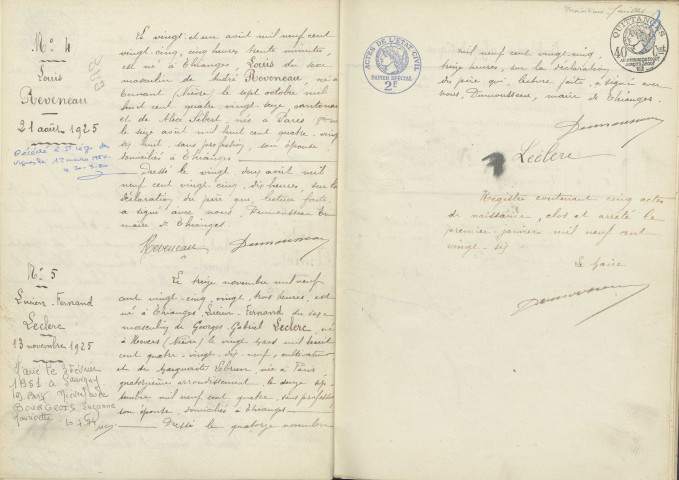 N° 4
Louis
Reveneau
21 août 1925
Décédé à St Léger des
Vignes le 12 mars
N° 5
Lucien-Fernand
Leclerc
13 novembre 1925
Marié le 3 Février
1951 à Sauvigny
les Bois Nièvre avec
BOURGEOIS Suzanne
Le vingt et un août mil neuf cent
vingt-cinq, cinq heures trente minutes,
est né à Thianges, Louis du sexe
masculin de André Reveneau, né à
(Nièvre) le sept octobre mil
huit cent quatre-vingt-seize, cantonnier
et de Alice Sébert, née à Paris
le seize août mil huit cent quatre-vingt
dix huit, sans profession, son épouse
domiciliés à Thianges
Dressé le vingt deux août mil
neuf cent vingt-cinq, dix heures, sur la
déclaration du père qui, lecture faite,
a signé avec nous, Dumousseau
maire de Thianges.
Reveneau Dumousseau
Le treize novembre mil neuf
cent vingt-cinq, vingt-trois heures, est
né à Thianges, Lucien-Fernand du sexe
masculin de Georges Gabriel Leclerc, né
à Nevers (Nièvre) le vingt mars mil huit
cent quatre-vingt-dix-neuf, cultivateur
et de Marguerite Lebrun, née à Paris
quatorzième arrondissement, le seize sep
tembre mil neuf cent quatre, sans profession
son épouse, domiciliés à Thianges
Dressé le quatorze novembre
ACTES DE L'ÉTAT CIVIL
PAPIER SPÉCIAL
2F
QUITTANCES
40
mil neuf cent vingt-cinq,
treize heures, sur la déclaration
du père qui, lecture faite, a signé avec
nous, Dumousseau, maire de Thianges.
Dumousseau
Leclerc
Registre contenant cinq actes
de naissance, clos et arrêté le
premier janvier mil neuf cent
vingt-six
Le Maire
Dumousseau